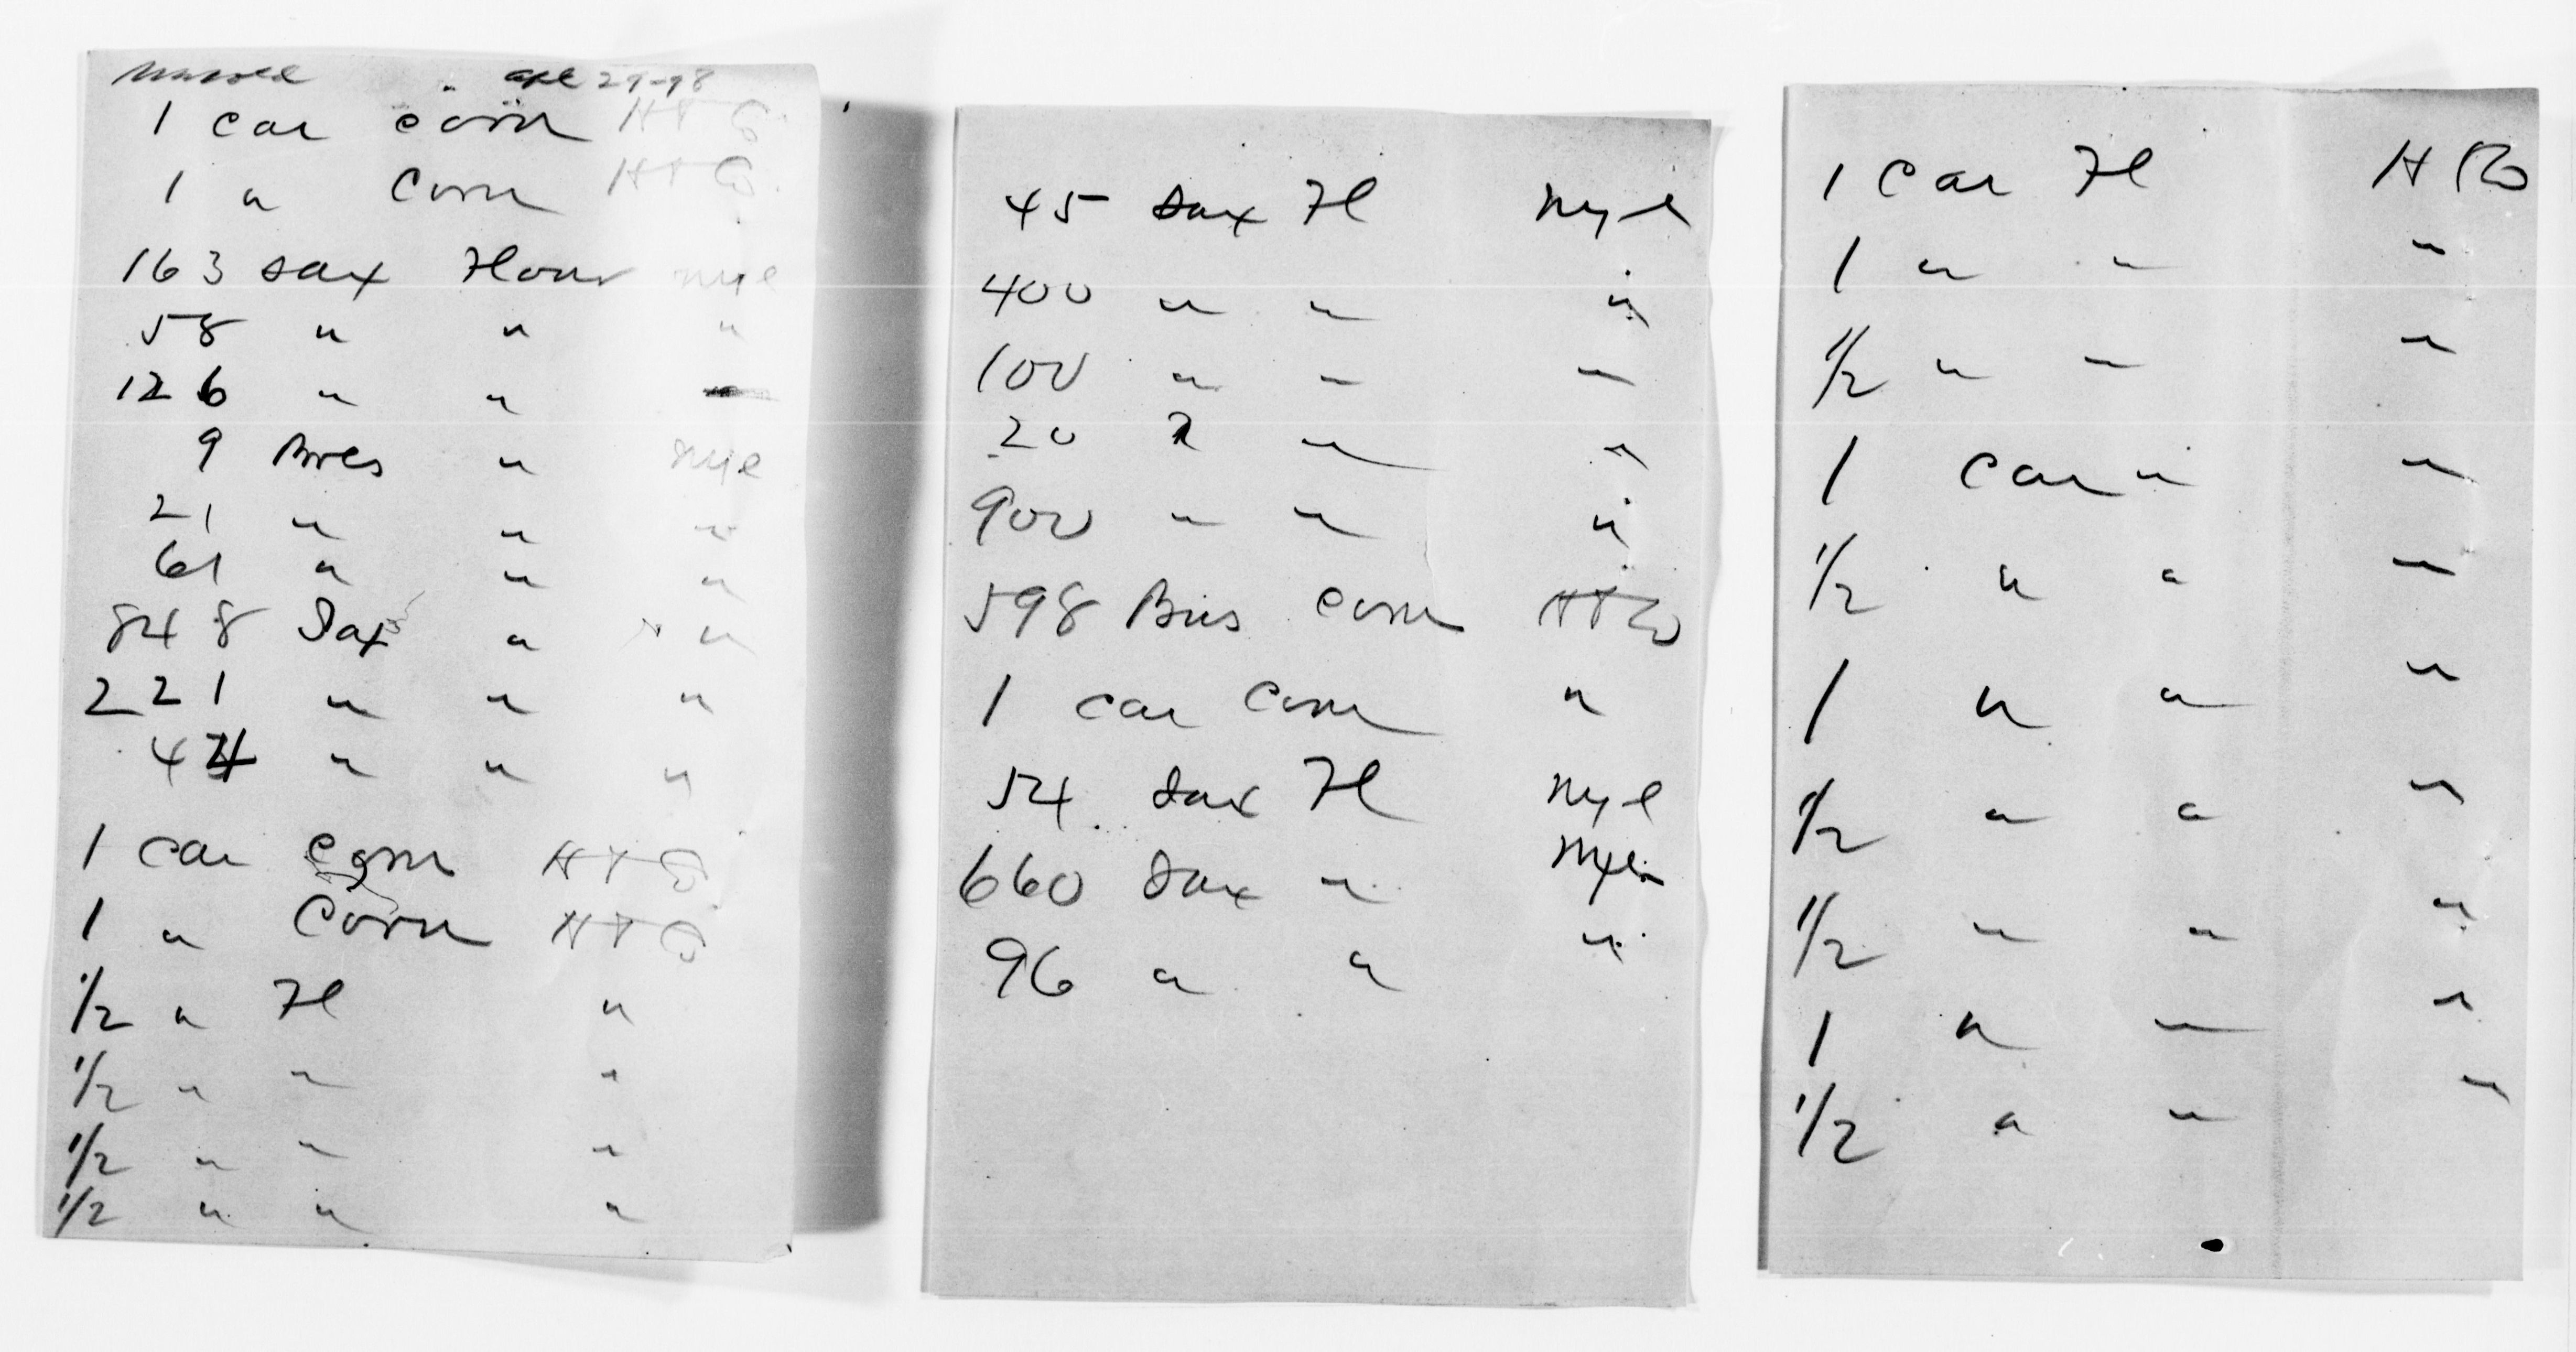 Apl 29-98
1 car corn H & Co
1 " Corn H & Co.
163 sax Flour Nye
58 " " "
126 " "
9 Brls " Nye
21 " " "
61 " " "
848 Sax " "
221 " " "
47 " " "
1 car corn H & Co
1 " Corn H & Co
1/2 " Fl "
1/2 " " "
1/2 " " "
1/2 " " "
45 sax Fl Nye
400 " " "
100 " " "
20 " " "
900 " " "
598 Bus Corn H & Co
1 car Corn "
54 sax Fl Nye
660 sax " Nye
96 " " "
1 Car Fl H Co
1 " " "
1/2 " " "
1 Car " "
1/2 " " "
1 " " "
1/2 " " "
1/2 " " "
1 " " "
1/2 " " "